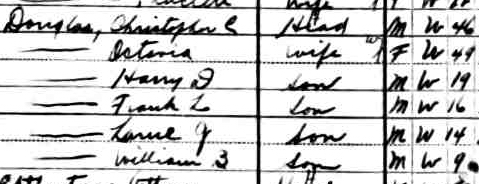 Wife
Douglas, Christopher C Head M W 46
— Ostavia Wife F W 49
— Harry D Son M W 19
— Frank L Son M W 16
— Son M W 14
— William B Son M W 9